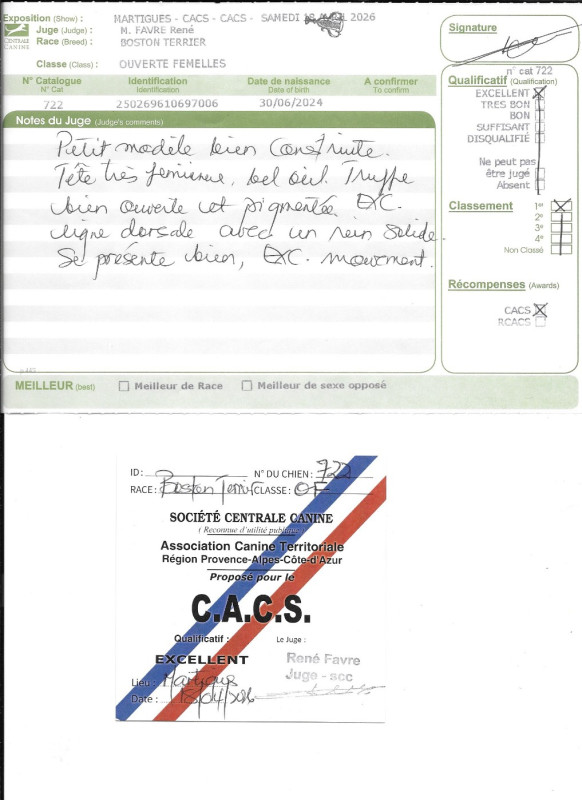 Exposition (Show) : MARTIGUES - CACS - CACS - SAMEDI 18 AVRIL 2026
Juge (Judge) : M. FAVRE René
Race (Breed) : BOSTON TERRIER
CENTRALE CANINE
Classe (Class) : OUVERTE FEMELLES
Signature
N° Catalogue Identification Date de naissance A confirmer
N° Cat Identification Date of birth To confirm
722 250269610697006 30/06/2024
Notes du Juge (Judge's comments)
Petit modèle bien construite.
Tête très féminine, bel oeil. Truffe
bien ouverte et pigmentée EXC.
ligne dorsale avec un rein solide.
Se présente bien, EXC. mouvement.
n° cat 722
Qualificatif (Qualification)
EXCELLENT
TRES BON
BON
SUFFISANT
DISQUALIFIÉ
Ne peut pas
être jugé
Absent
Classement 1er
2e
3e
4e
Non Classé
Récompenses (Awards)
CACS
RCACS
MEILLEUR (best) Meilleur de Race Meilleur de sexe opposé
ID : N° DU CHIEN : 722
RACE : Boston Terrier CLASSE : OF
SOCIÉTÉ CENTRALE CANINE
( Reconnue d'utilité publique )
Association Canine Territoriale
Région Provence-Alpes-Côte-d'Azur
Proposé pour le
C.A.C.S.
Qualificatif : Le Juge :
EXCELLENT
René Favre
Juge - scc
Lieu : Martigues
Date : 18/04/2026